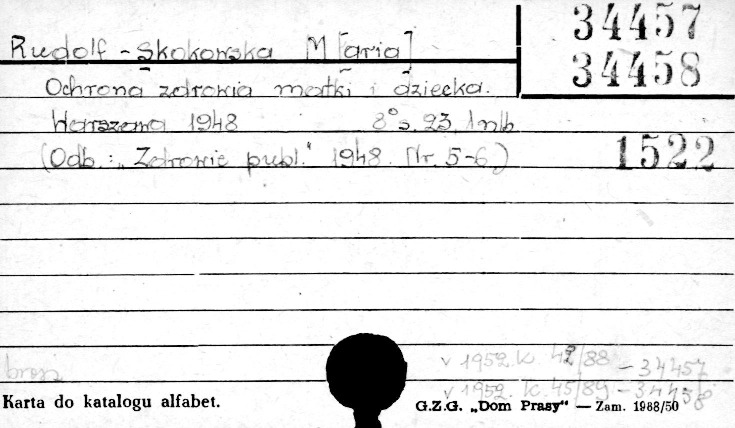 34457
Rudolf-Skokowska M[aria]
34458
Ochrona zdrowia matki i dziecka.
Warszawa 1948 8° s. 23, 1 nlb.
(Odb.: „Zdrowie publ." 1948. Nr. 5-6.)
1522
v 1952. k. 42/88 - 34457
v 1952. k. 45/89 - 34458
Karta do katalogu alfabet.
G.Z.G. „Dom Prasy" — Zam. 1988/50